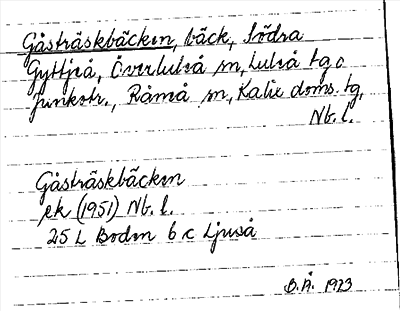 Gåsträskbäcken, bäck, Södra
Gyttjeå, Överluleå sn, Luleå tg o
punkstr., Råneå sn, Kalix doms. tg,
Nb. l.
Gåsträskbäcken
ek (1951) Nb. l.
25 L Boden 6 c Ljuså
B.Å. 1973